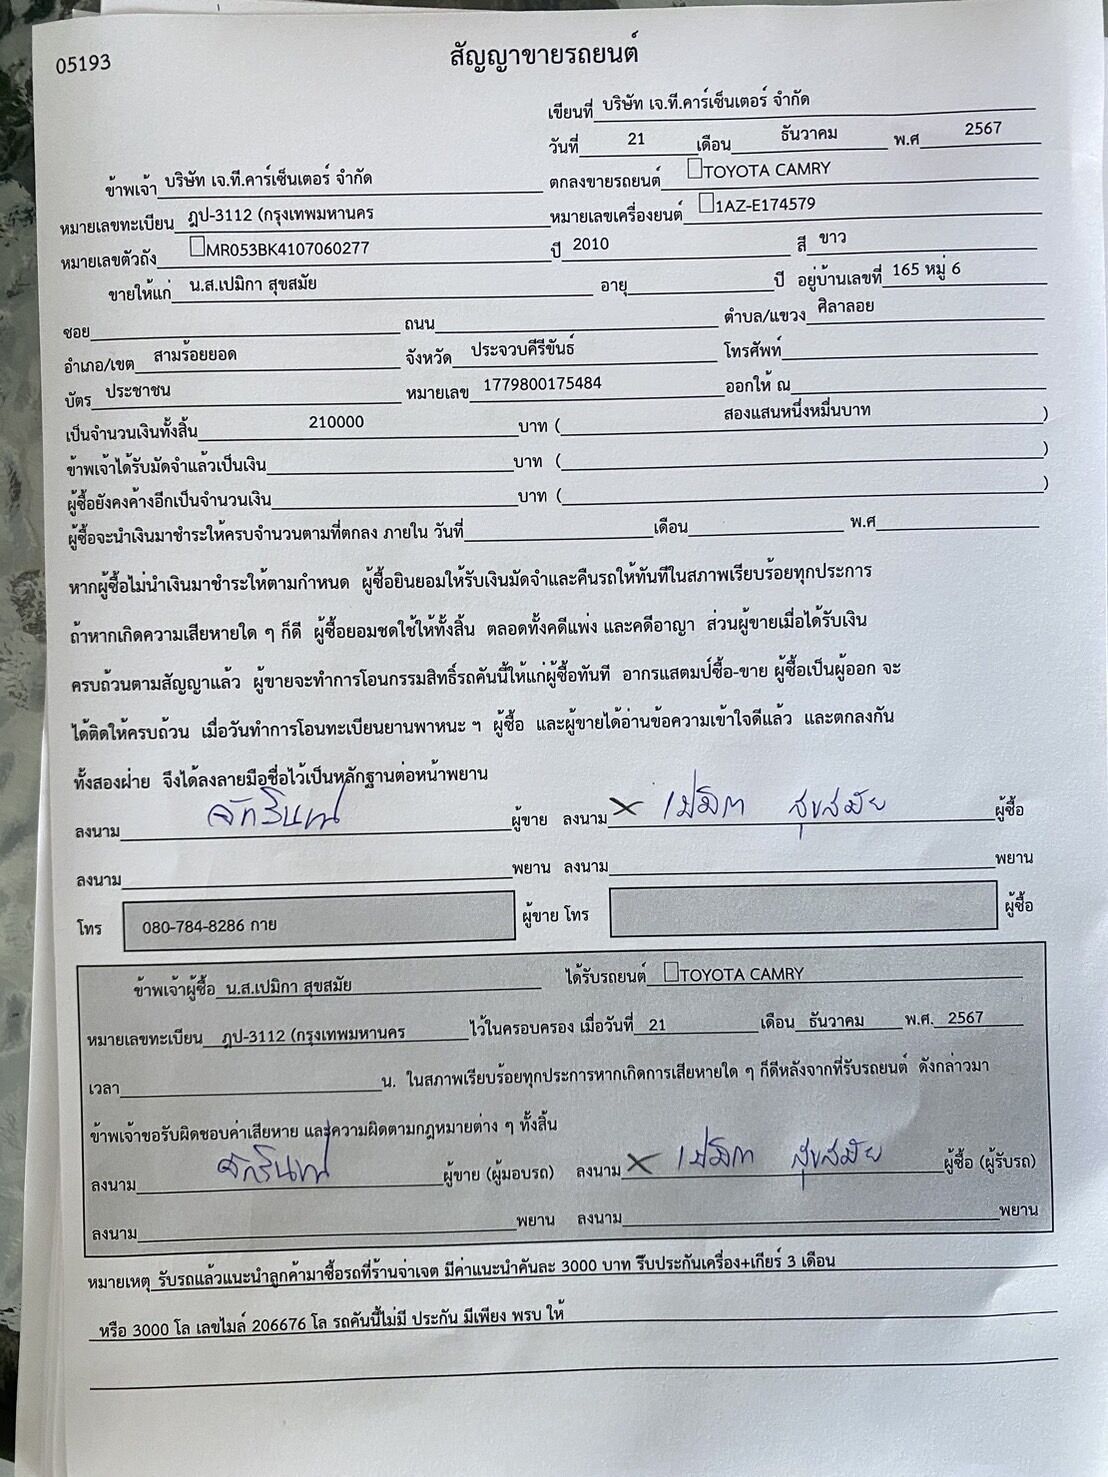 05193
สัญญาขายรถยนต์
เขียนที่ บริษัท เจ.ที.คาร์เซ็นเตอร์ จำกัด
วันที่ 21 เดือน ธันวาคม พ.ศ 2567
ข้าพเจ้า บริษัท เจ.ที.คาร์เซ็นเตอร์ จำกัด ตกลงขายรถยนต์ TOYOTA CAMRY
หมายเลขทะเบียน ฎป-3112 (กรุงเทพมหานคร หมายเลขเครื่องยนต์ 1AZ-E174579
หมายเลขตัวถัง MR053BK4107060277 ปี 2010 สี ขาว
ขายให้แก่ น.ส.เปมิกา สุขสมัย อายุ ปี อยู่บ้านเลขที่ 165 หมู่ 6
ซอย ถนน ตำบล/แขวง ศิลาลอย
อำเภอ/เขต สามร้อยยอด จังหวัด ประจวบคีรีขันธ์ โทรศัพท์
บัตร ประชาชน หมายเลข 1779800175484 ออกให้ ณ
เป็นจำนวนเงินทั้งสิ้น 210000 บาท ( สองแสนหนึ่งหมื่นบาท )
ข้าพเจ้าได้รับมัดจำแล้วเป็นเงิน บาท ( )
ผู้ซื้อยังคงค้างอีกเป็นจำนวนเงิน บาท ( )
ผู้ซื้อจะนำเงินมาชำระให้ครบจำนวนตามที่ตกลง ภายใน วันที่ เดือน พ.ศ
หากผู้ซื้อไม่นำเงินมาชำระให้ตามกำหนด ผู้ซื้อยินยอมให้รับเงินมัดจำและคืนรถให้ทันทีในสภาพเรียบร้อยทุกประการ
ถ้าหากเกิดความเสียหายใด ๆ ก็ดี ผู้ซื้อยอมชดใช้ให้ทั้งสิ้น ตลอดทั้งคดีแพ่ง และคดีอาญา ส่วนผู้ขายเมื่อได้รับเงิน
ครบถ้วนตามสัญญาแล้ว ผู้ขายจะทำการโอนกรรมสิทธิ์รถคันนี้ให้แก่ผู้ซื้อทันที อากรแสตมป์ซื้อ-ขาย ผู้ซื้อเป็นผู้ออก จะ
ได้ติดให้ครบถ้วน เมื่อวันทำการโอนทะเบียนยานพาหนะ ฯ ผู้ซื้อ และผู้ขายได้อ่านข้อความเข้าใจดีแล้ว และตกลงกัน
ทั้งสองฝ่าย จึงได้ลงลายมือชื่อไว้เป็นหลักฐานต่อหน้าพยาน
ลงนาม จักรินทน์ ผู้ขาย ลงนาม × เปมิกา สุขสมัย ผู้ซื้อ
ลงนาม พยาน ลงนาม พยาน
โทร 080-784-8286 กาย ผู้ขาย โทร ผู้ซื้อ
ข้าพเจ้าผู้ซื้อ น.ส.เปมิกา สุขสมัย ได้รับรถยนต์ TOYOTA CAMRY
หมายเลขทะเบียน ฎป-3112 (กรุงเทพมหานคร ไว้ในครอบครอง เมื่อวันที่ 21 เดือน ธันวาคม พ.ศ. 2567
เวลา น. ในสภาพเรียบร้อยทุกประการหากเกิดการเสียหายใด ๆ ก็ดีหลังจากที่รับรถยนต์ ดังกล่าวมา
ข้าพเจ้าขอรับผิดชอบค่าเสียหาย และความผิดตามกฎหมายต่าง ๆ ทั้งสิ้น
ลงนาม จักรินทน์ ผู้ขาย (ผู้มอบรถ) ลงนาม × เปมิกา สุขสมัย ผู้ซื้อ (ผู้รับรถ)
ลงนาม พยาน ลงนาม พยาน
หมายเหตุ รับรถแล้วแนะนำลูกค้ามาซื้อรถที่ร้านจ่าเจต มีค่าแนะนำคันละ 3000 บาท รับประกันเครื่อง+เกียร์ 3 เดือน
หรือ 3000 โล เลขไมล์ 206676 โล รถคันนี้ไม่มี ประกัน มีเพียง พรบ ให้